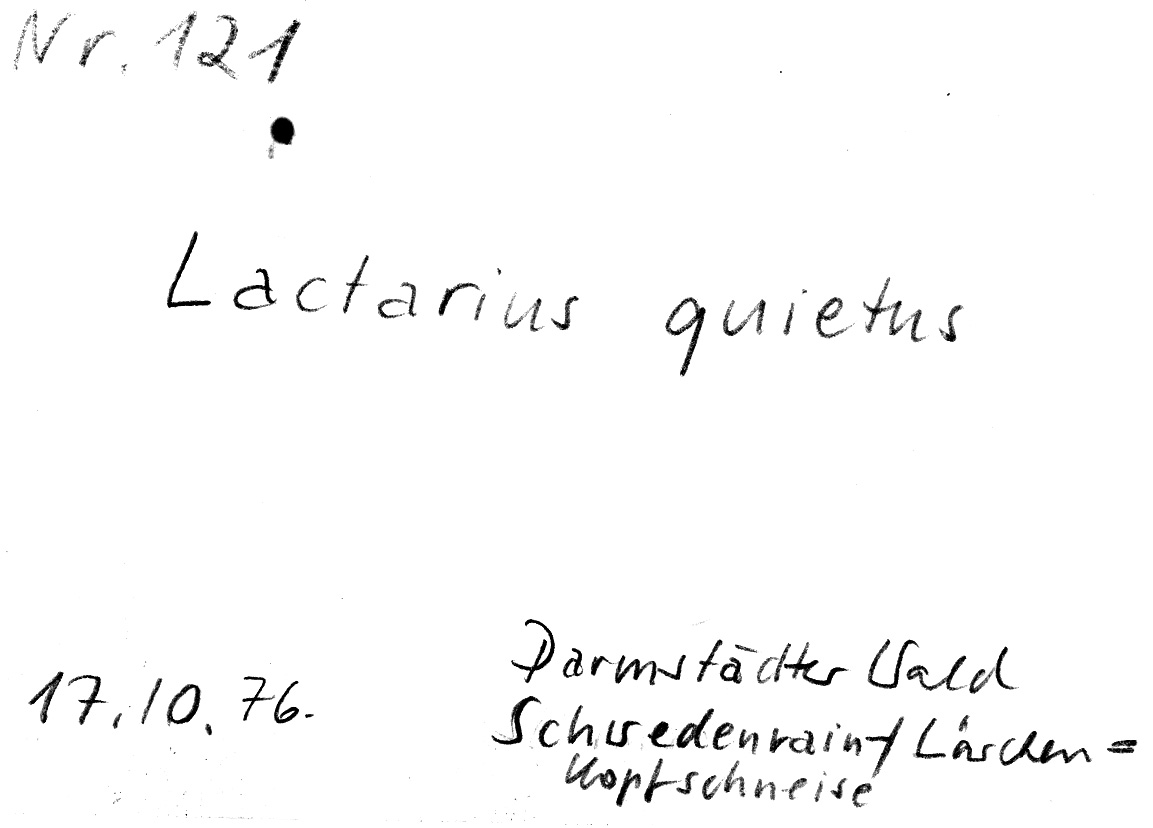 Nr. 121
Lactarius quietus
17.10.76.
Darmstädter Wald
Schwedenrain-/ Läschen=
kopfschneise